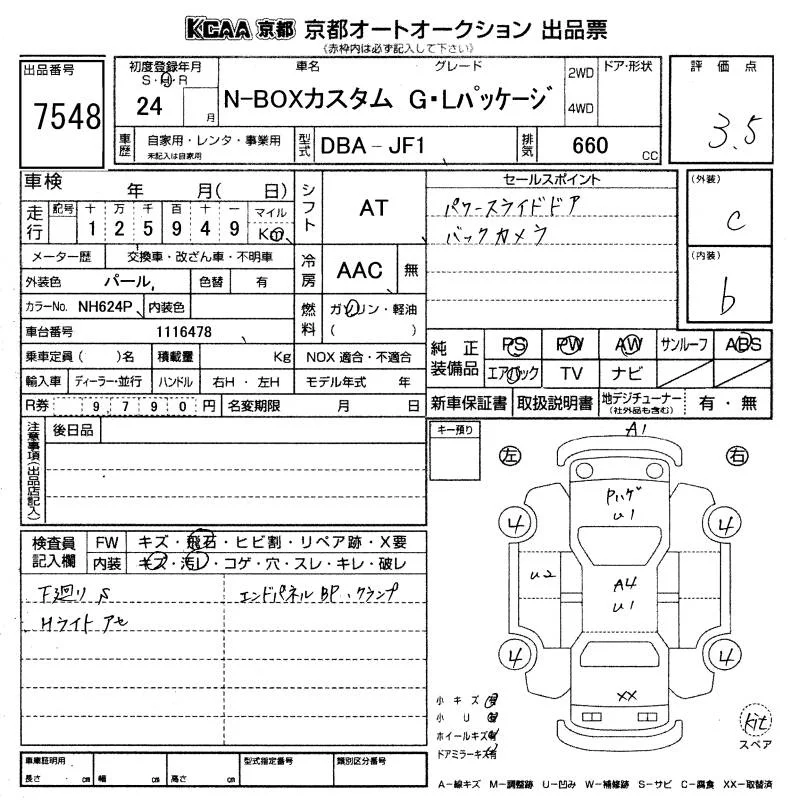 KCAA 京都 京都オートオークション 出品票
(赤枠内は必ず記入して下さい)
出品番号
7548
初度登録年月
S・H・R
24 月
車名 グレード
N-BOXカスタム G・Lパッケージ
2WD
4WD
ドア・形状
評価点
3.5
車歴
自家用・レンタ・事業用
未記入は自家用
型式
DBA-JF1
排気
660 CC
車検 年 月( 日)
走行
記号 十 万 千 百 十 一 マイル
1 2 5 9 4 9 Km
シフト
AT
セールスポイント
パワースライドドア
バックカメラ
(外装)
C
(内装)
b
メーター歴 交換車・改ざん車・不明車
外装色 パール 色替 有
冷房
AAC 無
カラーNo. NH624P 内装色
燃料
ガソリン・軽油
( )
車台番号 1116478
乗車定員( )名 積載量 Kg NOX 適合・不適合
輸入車 ディーラー・並行 ハンドル 右H・左H モデル年式 年
R券 9,790円 名変期限 月 日
純正装備品
PS PW AW サンルーフ ABS
エアバック TV ナビ
新車保証書 取扱説明書 地デジチューナー(社外品も含む) 有・無
注意事項(出品店記入)
後日品
キー預り
A1
左 右
検査員記入欄
FW キズ・飛石・ヒビ割・リペア跡・X要
内装 キズ・汚レ・コゲ・穴・スレ・キレ・破レ
下廻りS
Hライトアセ
エンドパネルBP、クランプ
Pハゲ
U1
4 4
U2
A4
U1
4 4
XX
小キズ有
小U有
ホイールキズ有
ドアミラーキズ有
kit
スペア
車庫証明用
長さ cm 幅 cm 高さ cm
型式指定番号
類別区分番号
A-線キズ M-調整跡 U-凹み W-補修跡 S-サビ C-腐食 XX-取替済